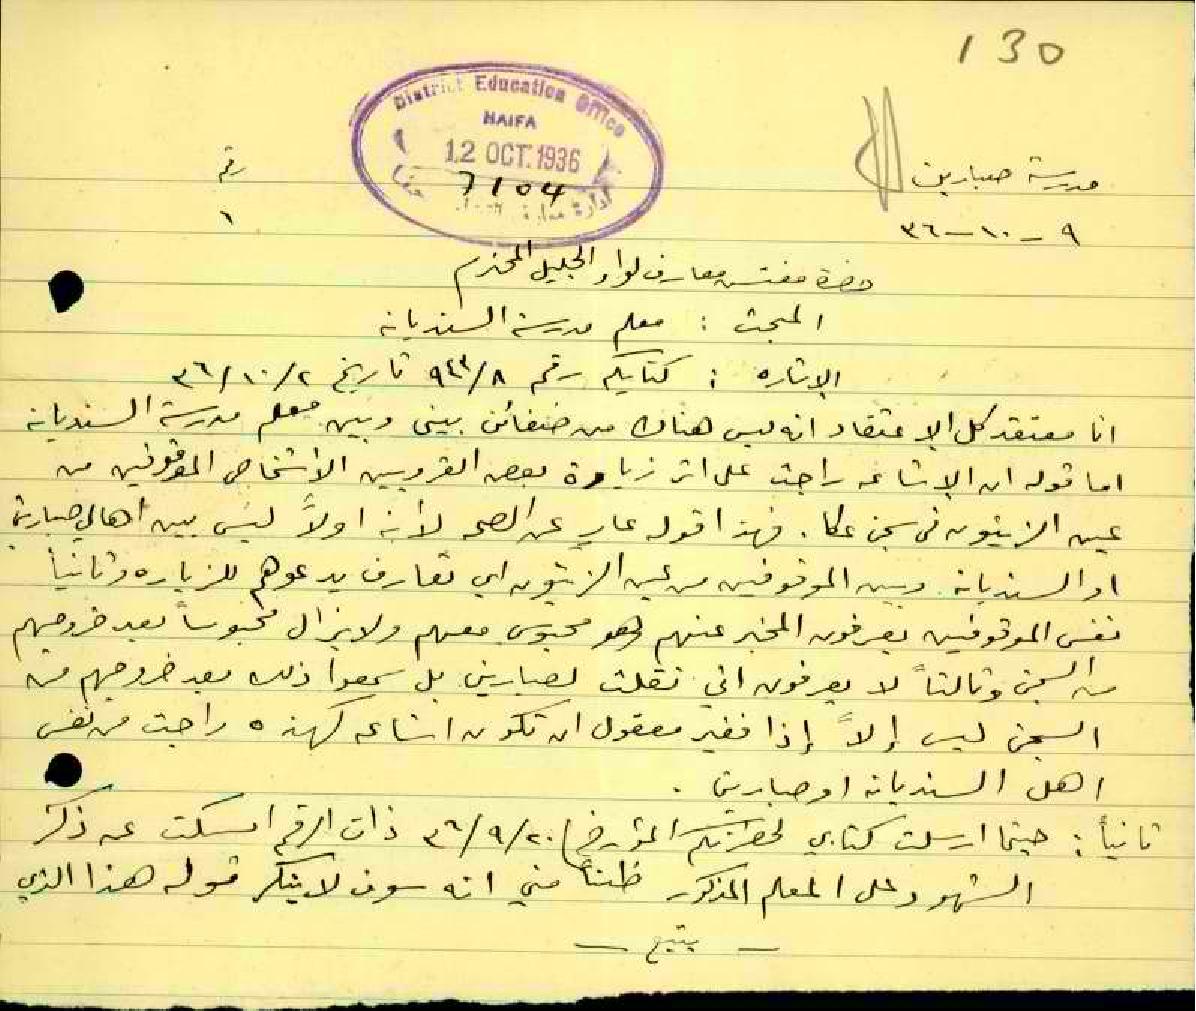 130
District Education Office
HAIFA
12 OCT. 1936
7104
إدارة معارف حيفا
مدرسة صبارين
رقم
١
٩-١٠-٣٦
حضرة مفتش معارف لواء الجليل المحترم
المبحث : معلم مدرسة السنديانة
الاشاره : كتابكم رقم ٩٤٣/٨ تاريخ ٣٦/١٠/٢
انا معتقد كل الاعتقاد انه ليس هناك من ضغائن بيني وبين معلم مدرسة السنديانه
اما قوله ان الاشاعه راجت على اثر زيارة بعض القرويين الأشخاص الموقوفين من
عين الزيتون في سجن عكا. فهذا قوله عارٍ عن الصحه لأنه اولاً ليس بين اهالي صبارين
او السنديانه وبين الموقوفين من عين الزيتون اي تعارف يدعوهم للزياره وثانياً
نفس الموقوفين يعرفون المخبر عنهم وهو محبوس معهم ولا يزال محبوساً بعد خروجهم
من السجن وثالثاً لا يعرفون اني نقلت لصبارين بل سمعوا ذلك بعد خروجهم من
السجن ليس إلاّ إذا فغير معقول ان تكون اشاعه كهذه راجت من نفس
اهل السنديانه او صبارين .
ثانياً : حينما ارسلت كتابي لحضرتكم المؤرخ ٣٦/٩/٢٠ ذات الرقم امسكت عن ذكر
الشهود على المعلم المذكور ظناً مني انه سوف لا ينكر قوله هذا الذي
— يتبع —